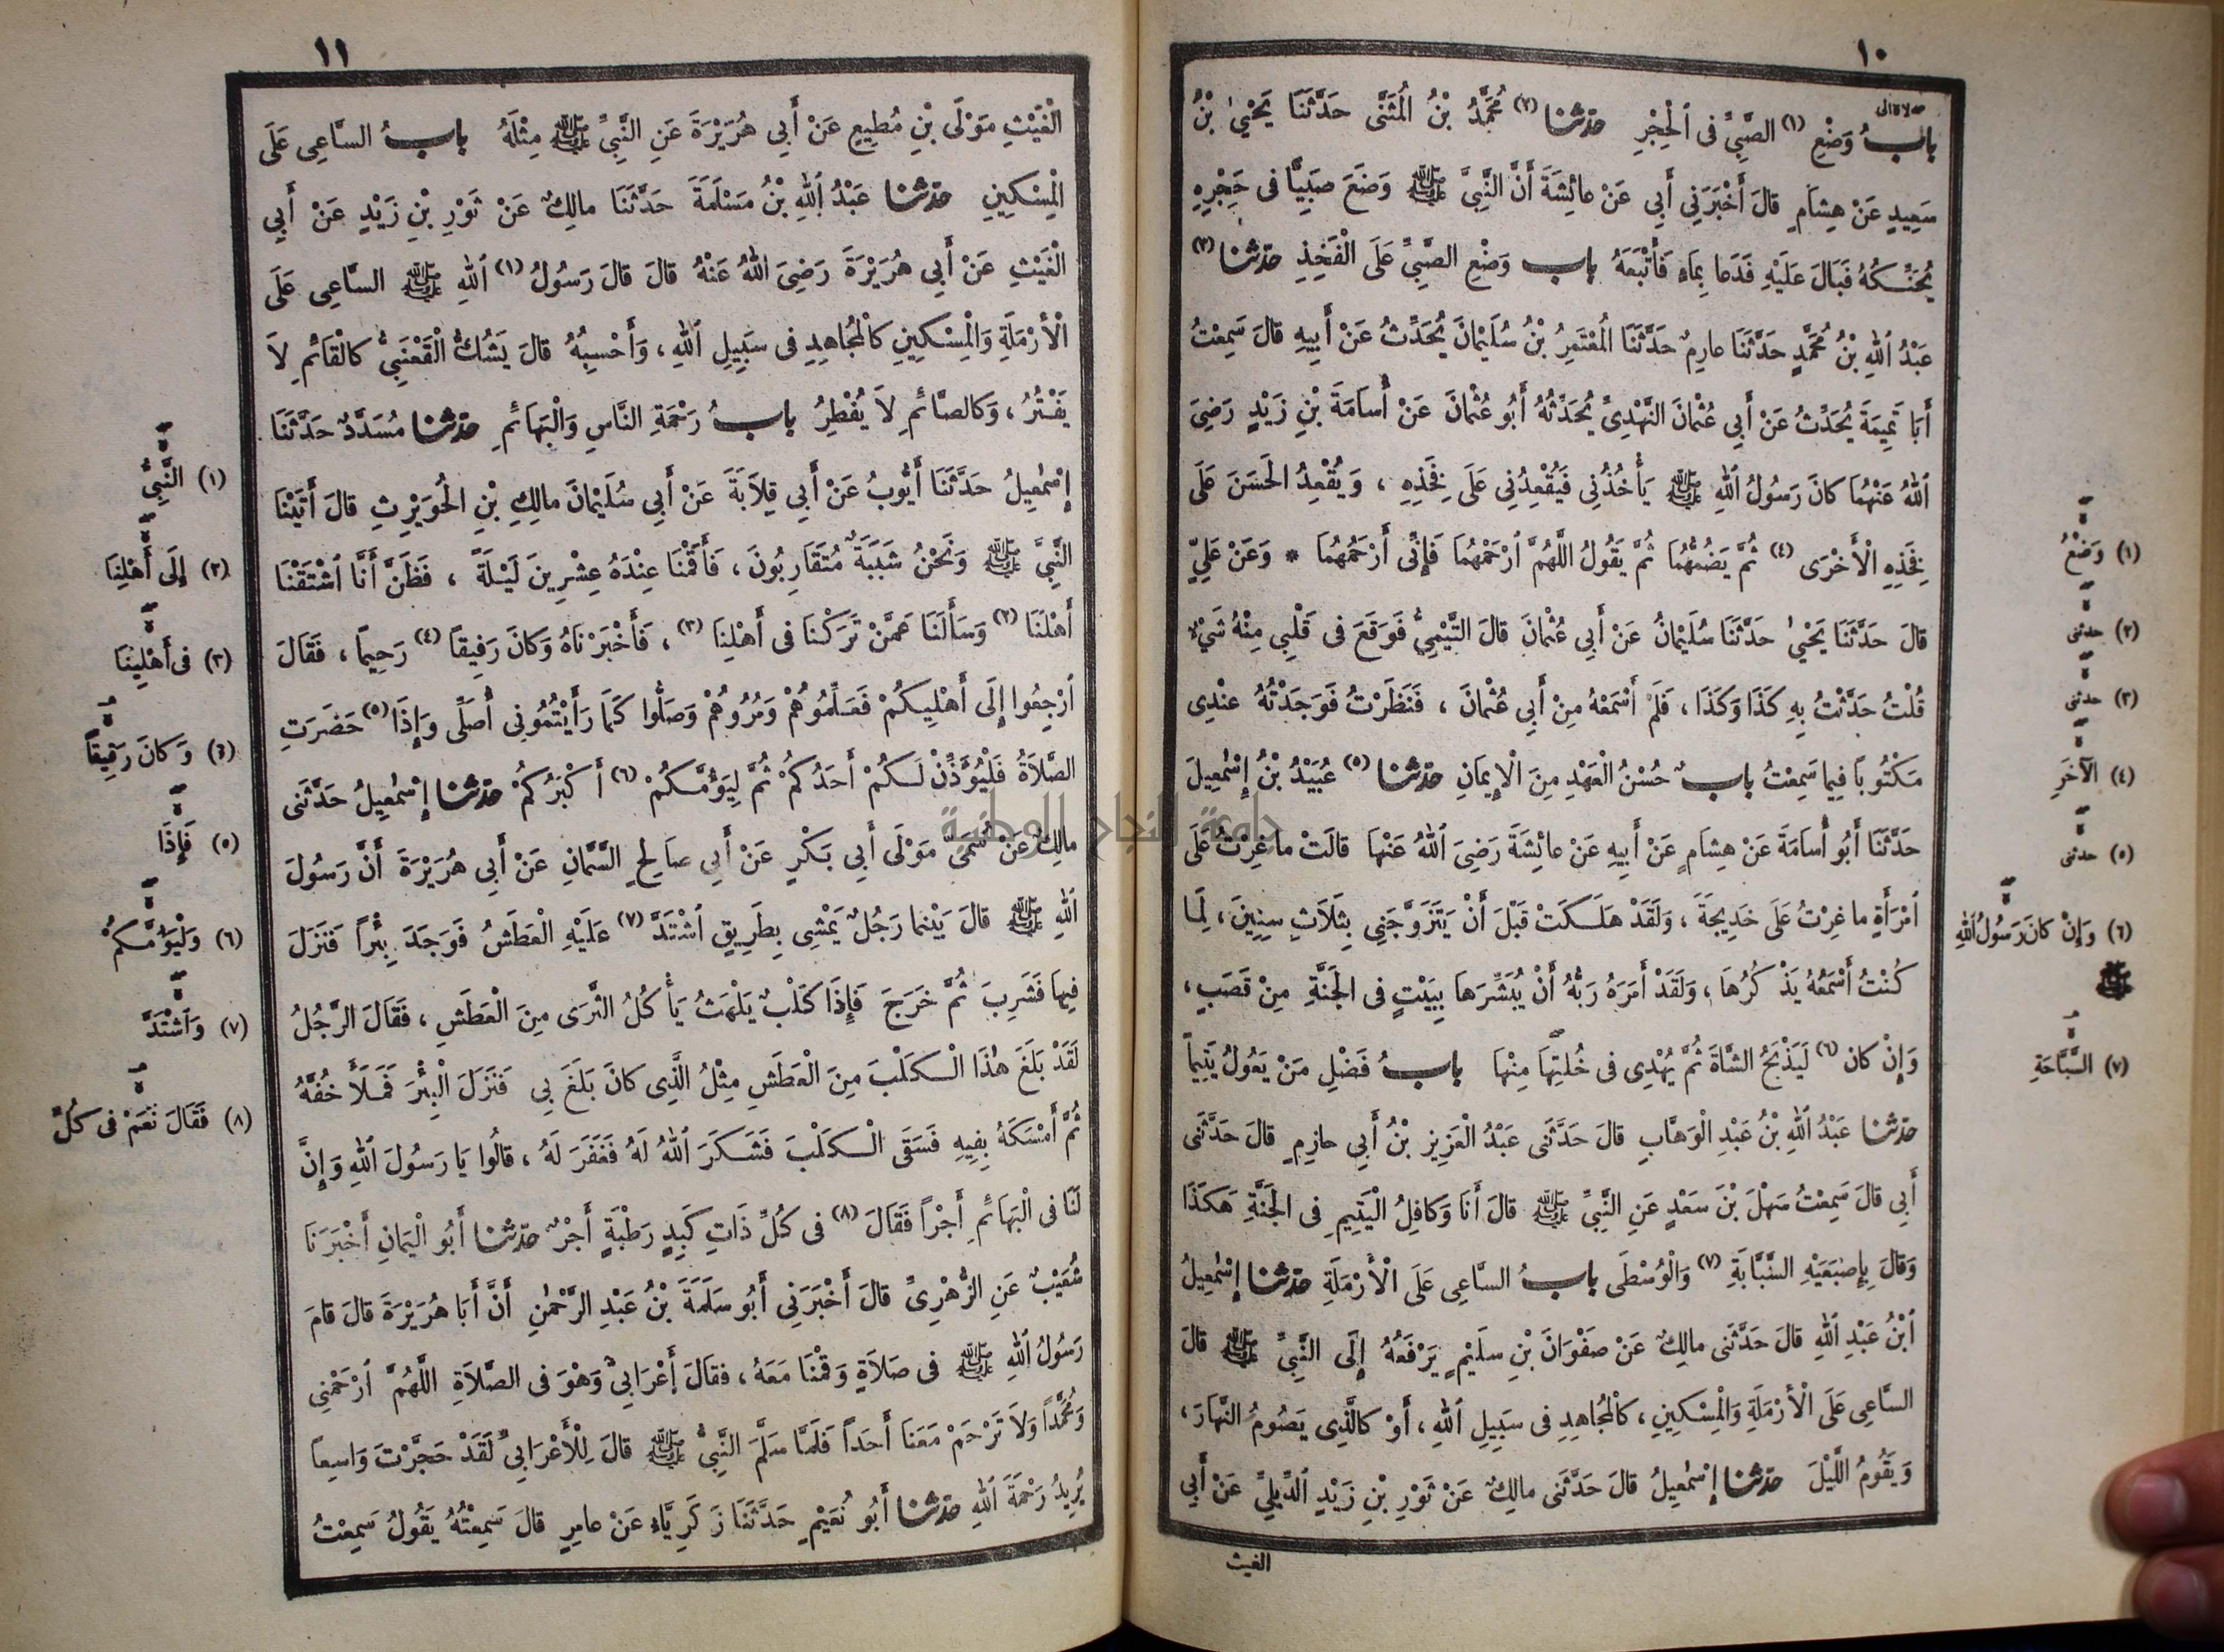 ١٠
بابُ وَضْعِ (١) الصَّبِيِّ فِى ٱلْحِجْرِ حَدَّثَنَا (٢) مُحَمَّدُ بْنُ الْمُثَنَّى حَدَّثَنَا يَحْيَىٰ بْنُ
سَعِيدٍ عَنْ هِشَامٍ قالَ أَخْبَرَنِي أَبِي عَنْ عائِشَةَ أَنَّ النَّبِيَّ ﷺ وَضَعَ صَبِيًّا فى حَجْرِهِ
يُحَنِّكُهُ فَبَالَ عَلَيْهِ فَدَعا بِمَاءٍ فَأَتْبَعَهُ باب وَضْعِ الصَّبِيِّ عَلَى الْفَخِذِ حَدَّثَنَا (٣)
عَبْدُ ٱللهِ بْنُ مُحَمَّدٍ حَدَّثَنَا عارِمٌ حَدَّثَنَا الْمُعْتَمِرُ بْنُ سُلَيْمَانَ يُحَدِّثُ عَنْ أَبِيهِ قالَ سَمِعْتُ
أَبَا تَمِيمَةَ يُحَدِّثُ عَنْ أَبِي عُثْمَانَ النَّهْدِيِّ يُحَدِّثُهُ أَبُو عُثْمَانَ عَنْ أُسَامَةَ بْنِ زَيْدٍ رَضِيَ
ٱللهُ عَنْهُمَا كانَ رَسُولُ ٱللهِ ﷺ يَأْخُذُنِي فَيُقْعِدُنِي عَلَى فَخِذِهِ ، وَيُقْعِدُ الحَسَنَ عَلَى
فَخِذِهِ الْأَخْرَى (٤) ثُمَّ يَضُمُّهُمَا ثُمَّ يَقُولُ اللَّهُمَّ ٱرْحَمْهُمَا فَإِنِّى أَرْحَمُهُمَا * وَعَنْ عَلِيٍّ
قالَ حَدَّثَنَا يَحْيَىٰ حَدَّثَنَا سُلَيْمَانُ عَنْ أَبِي عُثْمَانَ قالَ التَّيْمِيُّ فَوَقَعَ فى قَلْبِي مِنْهُ شَيْءٌ
قُلْتُ حَدَّثْتُ بِهِ كَذَا وَكَذَا ، فَلَمْ أَسْمَعْهُ مِنْ أَبِي عُثْمَانَ ، فَنَظَرْتُ فَوَجَدْتُهُ عِنْدِى
مَكْتُوبًا فِيما سَمِعْتُ بابٌ حُسْنُ الْعَهْدِ مِنَ الْإِيمَانِ حَدَّثَنَا (٥) عُبَيْدُ بْنُ إِسْمٰعِيلَ
حَدَّثَنَا أَبُو أُسَامَةَ عَنْ هِشَامٍ عَنْ أَبِيهِ عَنْ عائِشَةَ رَضِيَ ٱللهُ عَنْهَا قالَتْ ما غِرْتُ عَلَى
ٱمْرَأَةٍ ما غِرْتُ عَلَى خَدِيجَةَ ، وَلَقَدْ هَلَكَتْ قَبْلَ أَنْ يَتَزَوَّجَنِي بِثَلَاثِ سِنِينَ ، لِمَا
كُنْتُ أَسْمَعُهُ يَذْكُرُهَا ، وَلَقَدْ أَمَرَهُ رَبُّهُ أَنْ يُبَشِّرَهَا بِبَيْتٍ فى الجَنَّةِ مِنْ قَصَبٍ ،
وَإِنْ كان (٦) لَيَذْبَحُ الشَّاةَ ثُمَّ يُهْدِى فى خُلَّتِهَا مِنْهَا بابُ فَضْلِ مَنْ يَعُولُ يَتِيماً
حَدَّثَنَا عَبْدُ ٱللهِ بْنُ عَبْدِ الْوَهَّابِ قالَ حَدَّثَنِى عَبْدُ الْعَزِيزِ بْنُ أَبِي حازِمٍ قالَ حَدَّثَنِى
أَبِي قالَ سَمِعْتُ سَهْلَ بْنَ سَعْدٍ عَنِ النَّبِيِّ ﷺ قالَ أَنَا وَكافِلُ الْيَتِيمِ فِى الجَنَّةِ هَكَذَا
وَقالَ بِإِصْبَعَيْهِ السَّبَّابَةِ (٧) وَالْوُسْطَى بابُ السَّاعِى عَلَى الْأَرْمَلَةِ حَدَّثَنَا إِسْمٰعِيلُ
ٱبْنُ عَبْدِ ٱللهِ قالَ حَدَّثَنِى مالِكٌ عَنْ صَفْوَانَ بْنِ سُلَيْمٍ يَرْفَعُهُ إِلَى النَّبِيِّ ﷺ قالَ
السَّاعِى عَلَى الْأَرْمَلَةِ وَالْمِسْكِينِ ، كالْمُجَاهِدِ فى سَبِيلِ ٱللهِ ، أَوْ كالَّذِى يَصُومُ النَّهَارَ ،
وَيَقُومُ اللَّيْلَ حَدَّثَنَا إِسْمٰعِيلُ قالَ حَدَّثَنِى مالِكٌ عَنْ ثَوْرِ بْنِ زَيْدٍ ٱلدِّيلِيِّ عَنْ أَبِي
الغيث
(١) وَضْعُ
(٢) حدثنى
(٣) حدثنى
(٤) الآخَرِ
(٥) حدثنى
(٦) وَإِنْ كانَ رَسُولُ ٱللهِ
ﷺ
(٧) السَّبَّاحَةِ
١١
الْغَيْثِ مَوْلَى بْنِ مُطِيعٍ عَنْ أَبِي هُرَيْرَةَ عَنِ النَّبِيِّ ﷺ مِثْلَهُ بابُ السَّاعِى عَلَى
الْمِسْكِينِ حَدَّثَنَا عَبْدُ ٱللهِ بْنُ مَسْلَمَةَ حَدَّثَنَا مالِكٌ عَنْ ثَوْرِ بْنِ زَيْدٍ عَنْ أَبِي
الْغَيْثِ عَنْ أَبِي هُرَيْرَةَ رَضِيَ ٱللهُ عَنْهُ قالَ قالَ رَسُولُ (١) ٱللهِ ﷺ السَّاعِى عَلَى
الْأَرْمَلَةِ وَالْمِسْكِينِ كالْمُجَاهِدِ فى سَبِيلِ ٱللهِ ، وَأَحْسِبُهُ قالَ يَشُكُّ الْقَعْنَبِيُّ كالْقَائمِ لاَ
يَفْتُرُ ، وَكالصَّائمِ لاَ يُفْطِرُ بابُ رَحْمَةِ النَّاسِ وَالْبَهَائمِ حَدَّثَنَا مُسَدَّدٌ حَدَّثَنَا
إِسْمٰعِيلُ حَدَّثَنَا أَيُّوبُ عَنْ أَبِي قِلاَبَةَ عَنْ أَبِي سُلَيْمَانَ مالِكِ بْنِ الْحُوَيْرِثِ قالَ أَتَيْنَا
النَّبِيَّ ﷺ وَنَحْنُ شَبَبَةٌ مُتَقَارِبُونَ ، فَأَقَمْنَا عِنْدَهُ عِشْرِينَ لَيْلَةً ، فَظَنَّ أَنَّا ٱشْتَقْنَا
أَهْلَنَا (٢) وَسَأَلَنَا عَمَّنْ تَرَكْنَا فى أَهْلِنَا (٣) ، فَأَخْبَرْنَاهُ وَكانَ رَفِيقاً (٤) رَحِيماً ، فَقَالَ
ٱرْجِعُوا إِلَى أَهْلِيكُمْ فَعَلِّمُوهُمْ وَمُرُوهُمْ وَصَلُّوا كَمَا رَأَيْتُمُونِى أُصَلِّى وَإِذَا (٥) حَضَرَتِ
الصَّلاَةُ فَلْيُؤَذِّنْ لَكُمْ أَحَدُكُمْ ثُمَّ لِيَؤُمَّكُمْ (٦) أَكْبَرُكُمْ حَدَّثَنَا إِسْمٰعِيلُ حَدَّثَنِى
مالِكٌ عَنْ سُمَىٍّ مَوْلَى أَبِي بَكْرٍ عَنْ أَبِي صَالِحٍ السَّمَّانِ عَنْ أَبِي هُرَيْرَةَ أَنَّ رَسُولَ
ٱللهِ ﷺ قالَ بَيْنما رَجُلٌ يَمْشِى بِطَرِيقٍ ٱشْتَدَّ (٧) عَلَيْهِ الْعَطَشُ فَوَجَدَ بِئْراً فَنَزَلَ
فِيهَا فَشَرِبَ ثُمَّ خَرَجَ فَإِذَا كَلْبٌ يَلْهَثُ يَأْكُلُ الثَّرَى مِنَ الْعَطَشِ ، فَقَالَ الرَّجُلُ
لَقَدْ بَلَغَ هٰذَا الْكَلْبَ مِنَ الْعَطَشِ مِثْلُ الَّذِى كانَ بَلَغَ بِي فَنَزَلَ الْبِئْرَ فَمَلَأَ خُفَّهُ
ثُمَّ أَمْسَكَهُ بِفِيهِ فَسَقَى الْكَلْبَ فَشَكَرَ ٱللهُ لَهُ فَغَفَرَ لَهُ ، قالُوا يَا رَسُولَ ٱللهِ وَإِنَّ
لَنَا فى الْبَهَائمِ أَجْراً فَقَالَ (٨) فى كُلِّ ذَاتِ كَبِدٍ رَطْبَةٍ أَجْرٌ حَدَّثَنَا أَبُو الْيَمَانِ أَخْبَرَنَا
شُعَيْبٌ عَنِ الزُّهْرِىِّ قالَ أَخْبَرَنِى أَبُو سَلَمَةَ بْنُ عَبْدِ الرَّحْمٰنِ أَنَّ أَبَا هُرَيْرَةَ قالَ قامَ
رَسُولُ ٱللهِ ﷺ فى صَلاَةٍ وَقُمْنَا مَعَهُ ، فقَالَ أَعْرَابِيٌّ وَهْوَ فى الصَّلاَةِ اللَّهُمَّ ٱرْحَمْنِى
وَمُحَمَّداً وَلاَ تَرْحَمْ مَعَنَا أَحَداً فَلَمَّا سَلَّمَ النَّبِيُّ ﷺ قالَ لِلْأَعْرَابِيِّ لَقَدْ حَجَّرْتَ وَاسِعاً
يُرِيدُ رَحْمَةَ ٱللهِ حَدَّثَنَا أَبُو نُعَيْمٍ حَدَّثَنَا زَكَرِيَّاءُ عَنْ عامِرٍ قالَ سَمِعْتُهُ يَقُولُ سَمِعْتُ
(١) النَّبِيُّ
(٢) إِلَى أَهْلِنَا
(٣) فى أَهْلِينَا
(٤) وَكانَ رَقِيقاً
(٥) فَإِذَا
(٦) وَلْيَؤُمَّكُمْ
(٧) وَٱشْتَدَّ
(٨) فَقَالَ نَعَمْ فى كُلِّ
جامعة النجاح الوطنية